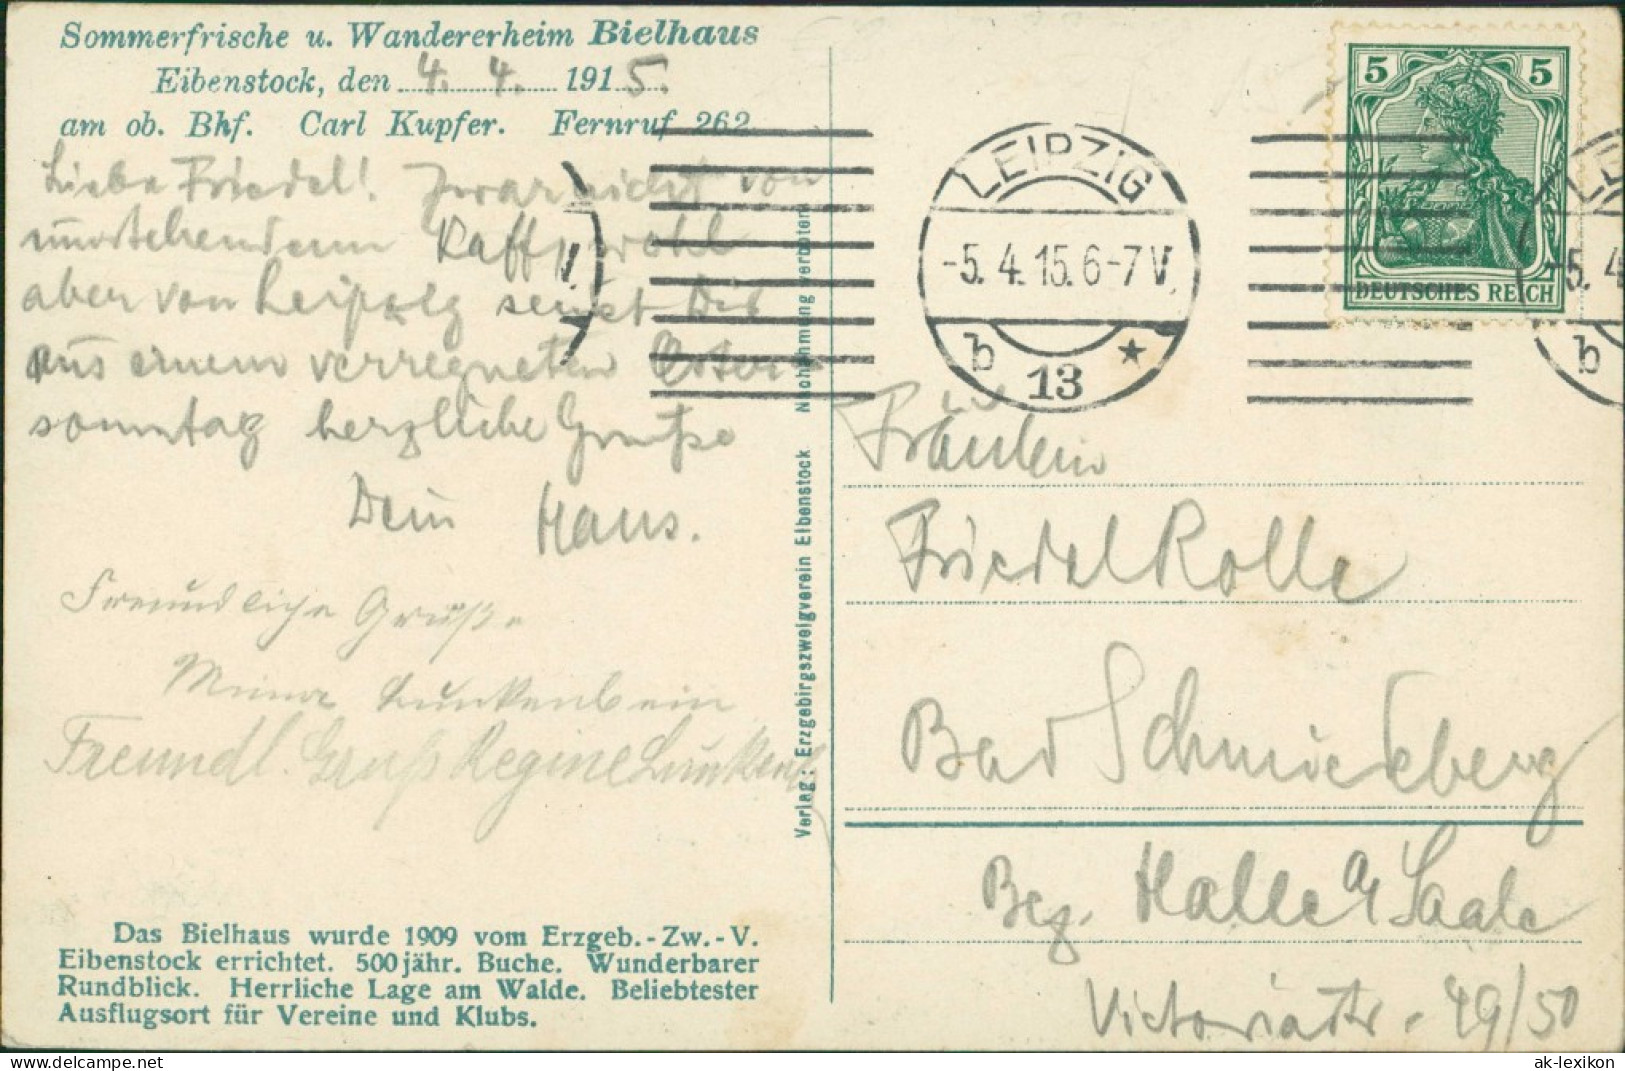 Sommerfrische u. Wandererheim Bielhaus
Eibenstock, den 4. 4. 1915.
am ob. Bhf. Carl Kupfer. Fernruf 262
Liebe Friedel! Zwar nicht von
umstehendem Kaff, wohl
aber von Leipzig sendet Dir
aus einem verregneten Oster-
sonntag herzliche Grüße
Dein Hans.
Freundliche Grüße
Minna Lunkenbein
Freundl. Gruß Regine Lunkenb
Das Bielhaus wurde 1909 vom Erzgeb.-Zw.-V.
Eibenstock errichtet. 500jähr. Buche. Wunderbarer
Rundblick. Herrliche Lage am Walde. Beliebtester
Ausflugsort für Vereine und Klubs.
Verlag: Erzgebirgszweigverein Eibenstock Nachahmung verboten
LEIPZIG
-5.4.15.6-7V.
b 13 *
5 5
DEUTSCHES REICH
LE
-5.4
b
Fräulein
Friedel Rolle
Bad Schmiedeberg
Bez. Halle a/Saale
Victoriastr. 49/50
ak-lexikon
delcampe.net